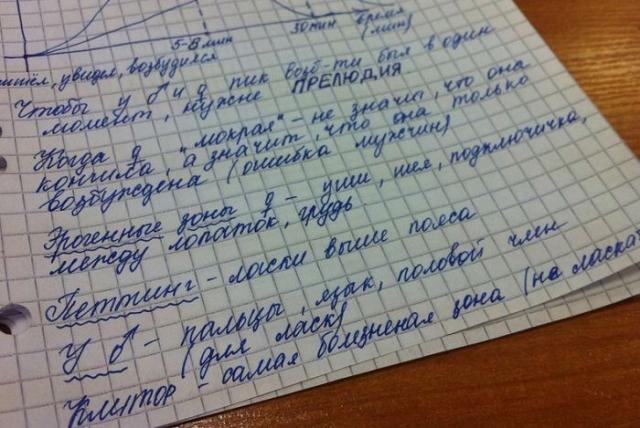 время
5-8 мин 30 мин (мин)
пришёл, увидел, возбудился
Чтобы у ♂ и ♀ пик возб-ти был в один
момент, нужне ПРЕЛЮДИЯ.
Когда ♀ "мокрая" - не значит, что она
кончила, а значит, что она только
возбуждена (ошибка мужчин)
Эрогенные зоны ♀ - уши, шея, подключичка,
между лопаток, грудь.
Петтинг - ласки выше пояса
У ♂ - пальцы, язык, половой член
(для ласк)
Клитор - самая болезненая зона (на ласках